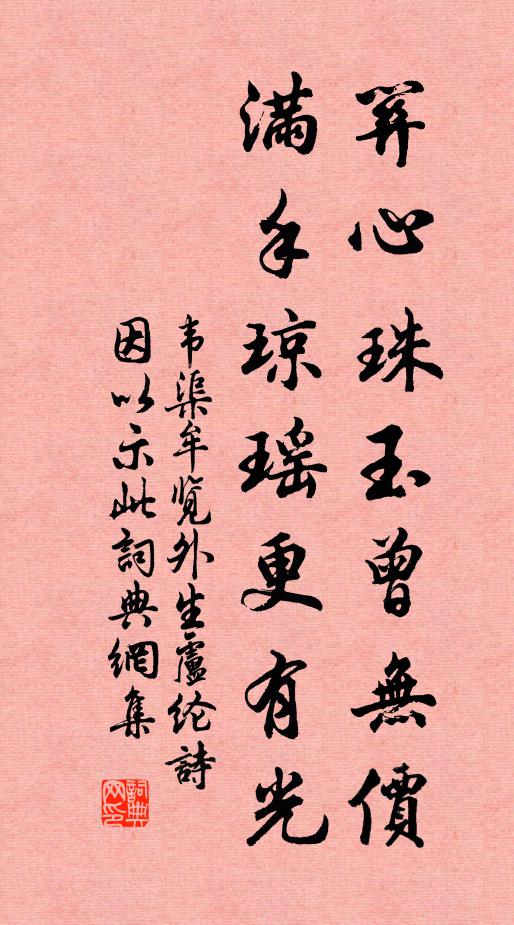 关心珠玉曾無價
满手琼瑶更有光
韦渠牟览外生盧纶詩
因以示此詞典網集
詞典
网印